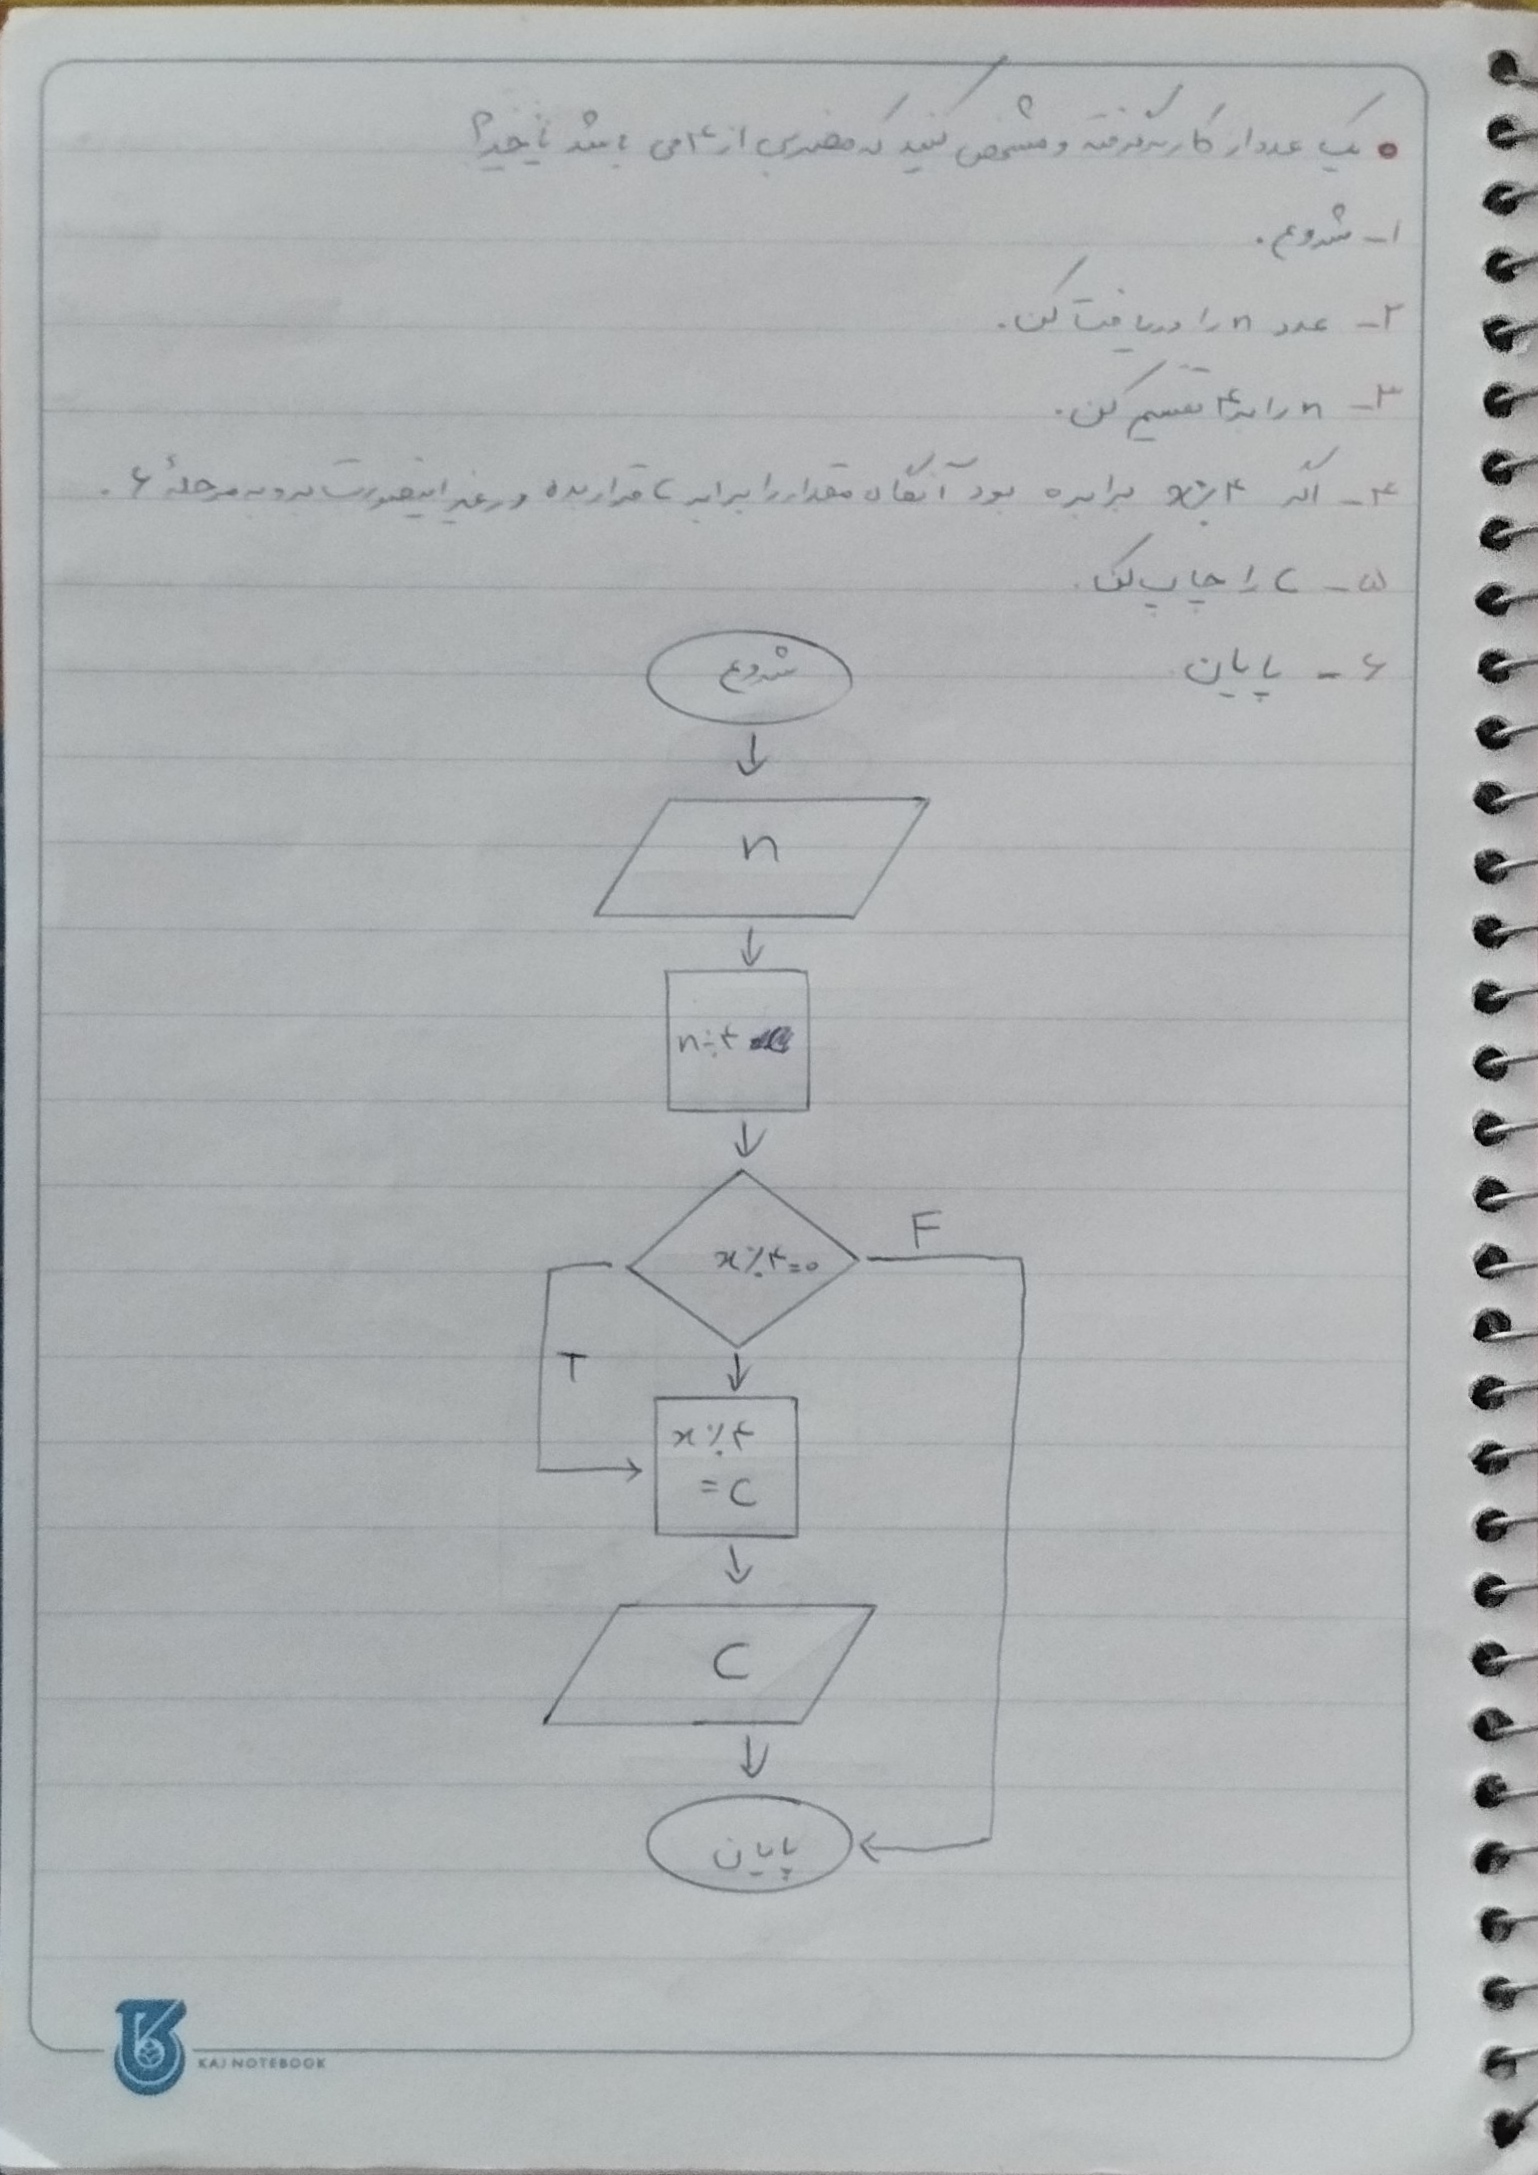 یک عدد از کاربر گرفته و مشخص کنید که مضربی از ۴ می باشد یا خیر؟
۱- شروع.
۲- عدد n را دریافت کن.
۳- n را بر ۴ تقسیم کن.
۴- اگر x٪۴ برابر ۰ بود آنگاه مقدار را برابر c قرار بده در غیر اینصورت برو به مرحلهٔ ۶.
۵- c را چاپ کن.
۶- پایان
شروع
n
n÷۴
x٪۴=۰
F
T
x٪۴
=C
C
پایان
KAJ NOTEBOOK